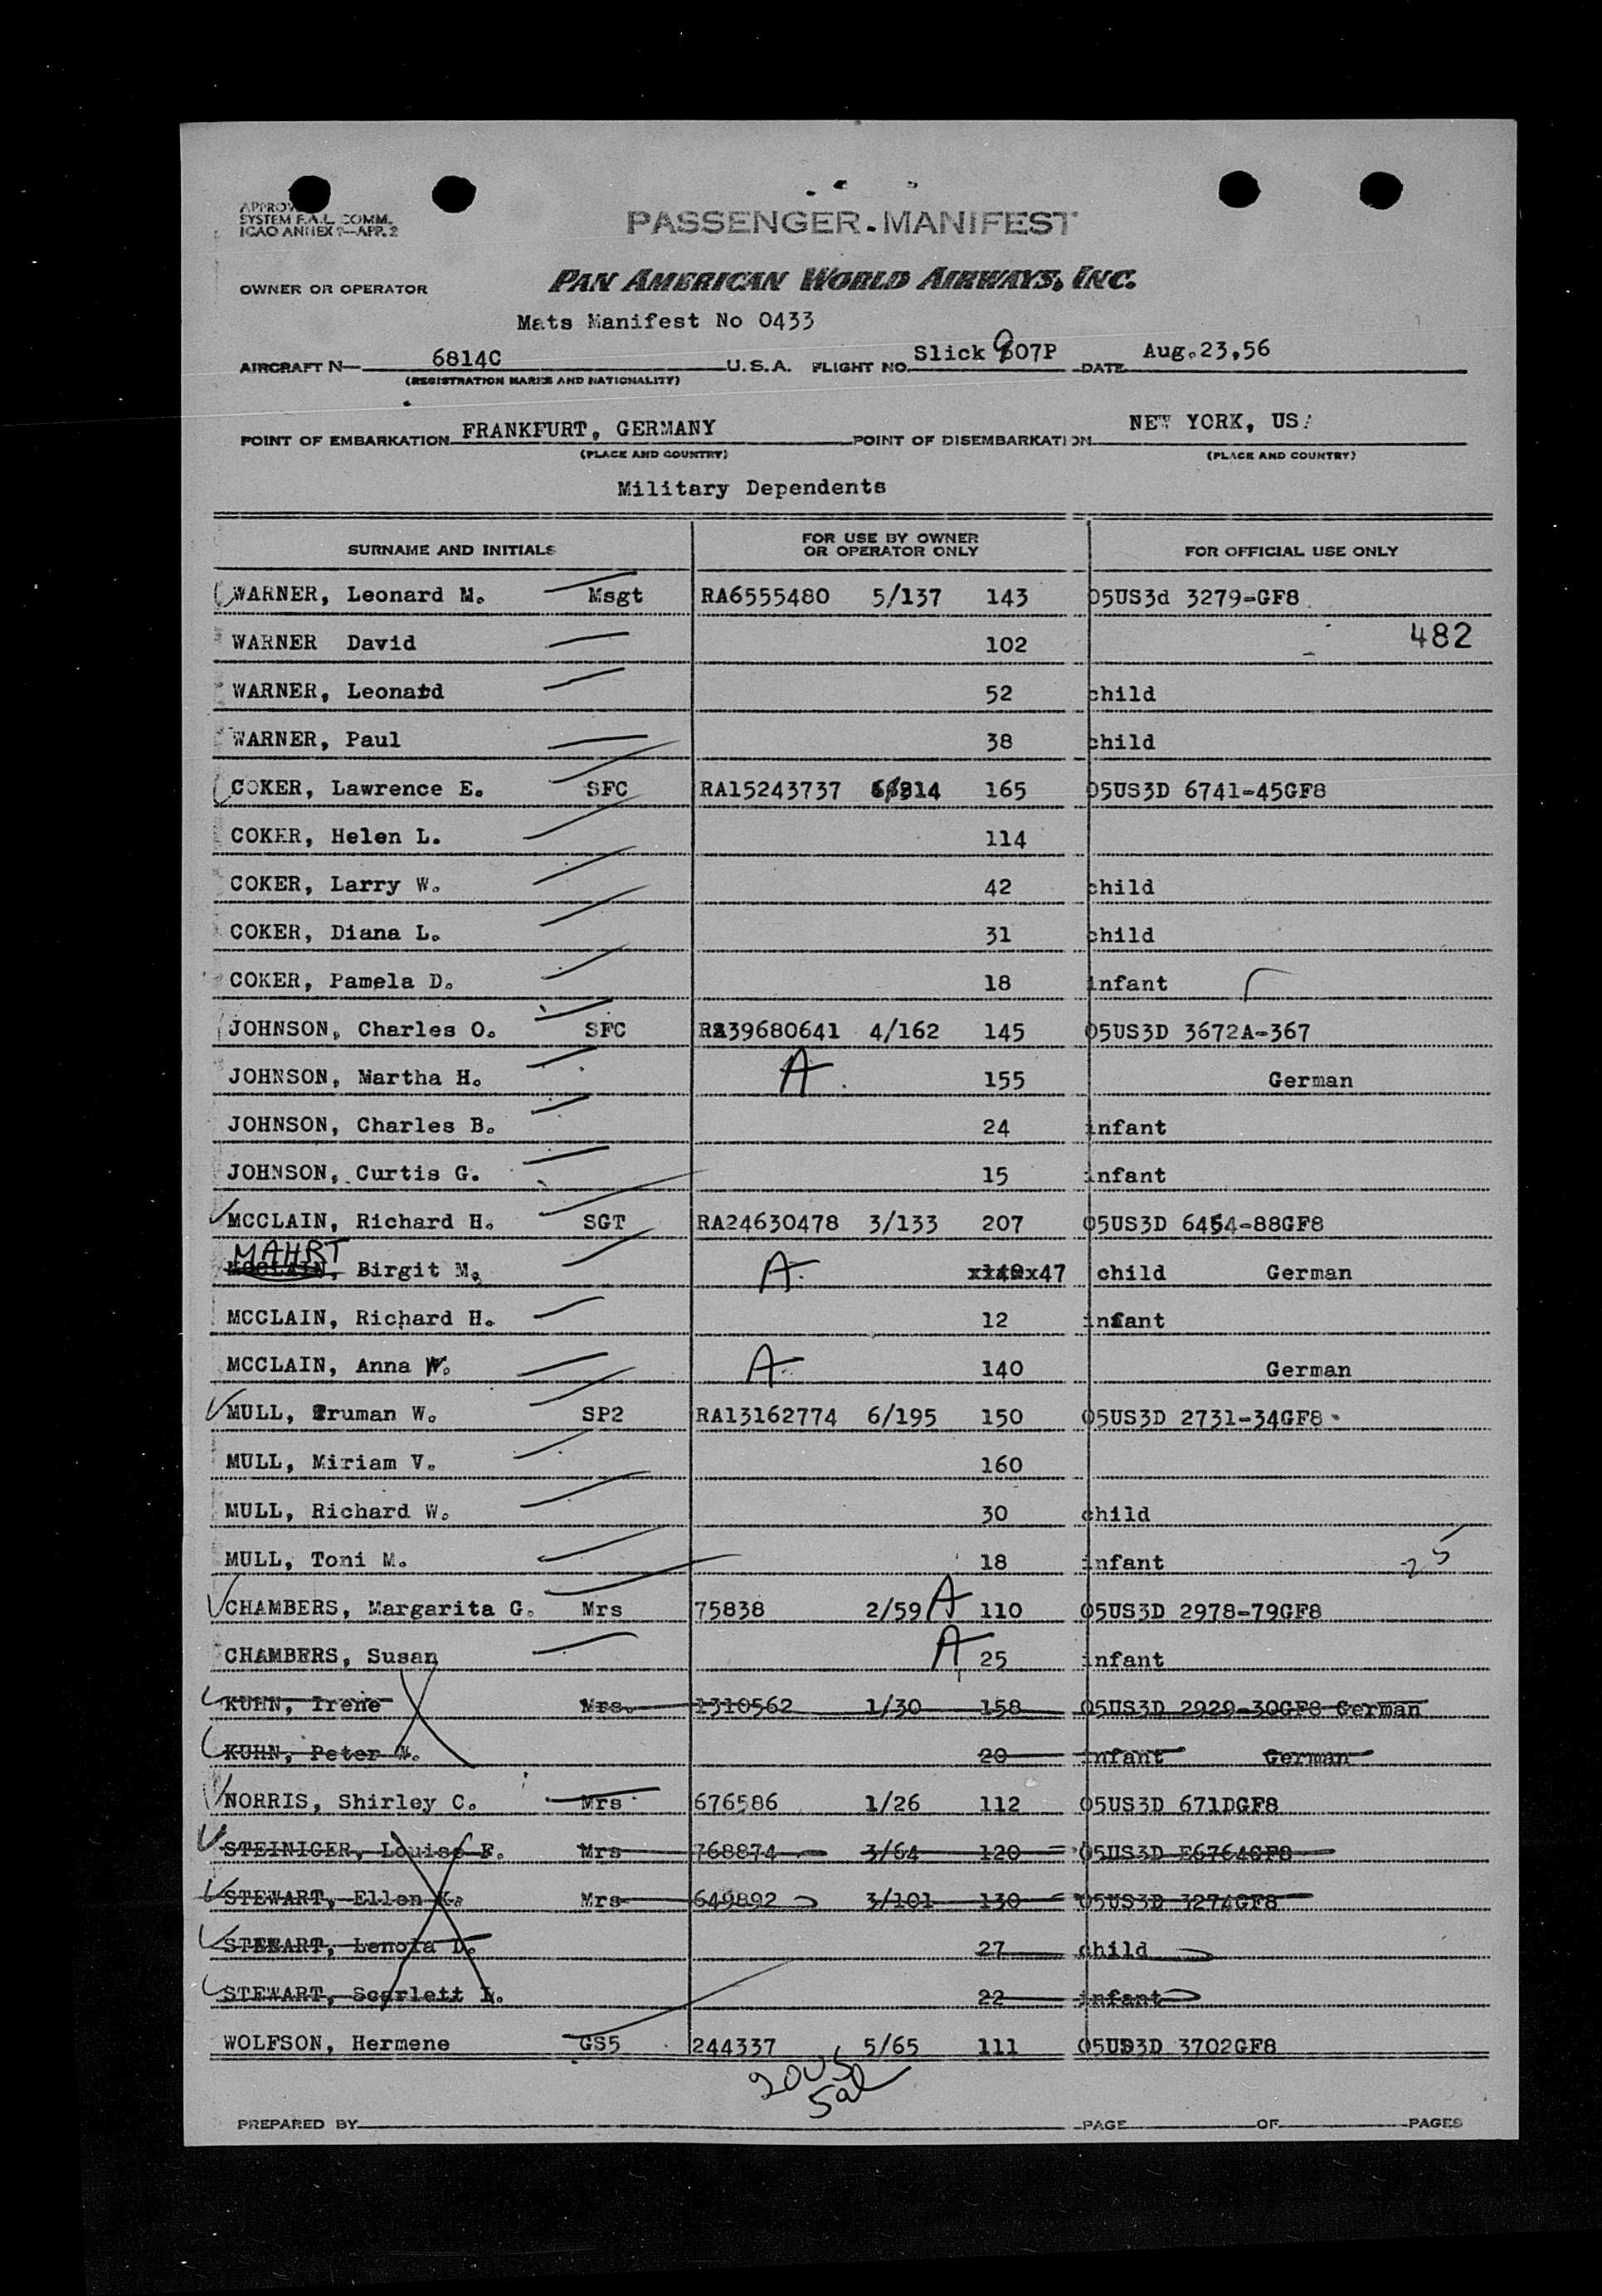 SYSTEM F.A.L. COMM.
ICAO ANNEX 9—APP. 2
PASSENGER MANIFEST
OWNER OR OPERATOR PAN AMERICAN WORLD AIRWAYS, INC.
Mats Manifest No 0433
AIRCRAFT N— 6814C U.S.A. FLIGHT NO. Slick 907P DATE Aug.23,56
(REGISTRATION MARKS AND NATIONALITY)
POINT OF EMBARKATION FRANKFURT, GERMANY POINT OF DISEMBARKATION NEW YORK, US
(PLACE AND COUNTRY) (PLACE AND COUNTRY)
Military Dependents
SURNAME AND INITIALS FOR USE BY OWNER OR OPERATOR ONLY FOR OFFICIAL USE ONLY
WARNER, Leonard M. Msgt RA6555480 5/137 143 05US3d 3279-GF8
WARNER David 102 482
WARNER, Leonard 52 child
WARNER, Paul 38 child
COKER, Lawrence E. SFC RA15243737 165 05US3D 6741-45GF8
COKER, Helen L. 114
COKER, Larry W. 42 child
COKER, Diana L. 31 child
COKER, Pamela D. 18 infant
JOHNSON, Charles O. SFC RA39680641 4/162 145 05US3D 3672A-367
JOHNSON, Martha H. A 155 German
JOHNSON, Charles B. 24 infant
JOHNSON, Curtis G. 15 infant
MCCLAIN, Richard H. SGT RA24630478 3/133 207 05US3D 6454-88GF8
MAHRT
MCCLAIN, Birgit M. A 47 child German
MCCLAIN, Richard H. 12 infant
MCCLAIN, Anna W. A 140 German
MULL, Truman W. SP2 RA13162774 6/195 150 05US3D 2731-34GF8
MULL, Miriam V. 160
MULL, Richard W. 30 child
MULL, Toni M. 18 infant 25
CHAMBERS, Margarita G. Mrs 75838 2/59 A 110 05US3D 2978-79GF8
CHAMBERS, Susan A 25 infant
KUHN, Irene Mrs. 1310562 1/30 158 05US3D 2929-30GF8 German
KUHN, Peter W. 20 infant German
NORRIS, Shirley C. Mrs 676586 1/26 112 05US3D 671DGF8
STEINIGER, Louise F. Mrs 768874 3/64 120 05US3D E6764GF8
STEWART, Ellen K. Mrs 649892 3/101 130 05US3D 3274GF8
STEWART, Lenora D. 27 child
STEWART, Scarlett L. 22 infant
WOLFSON, Hermene GS5 244337 5/65 111 05US3D 3702GF8
20US
5al
PREPARED BY PAGE OF PAGES